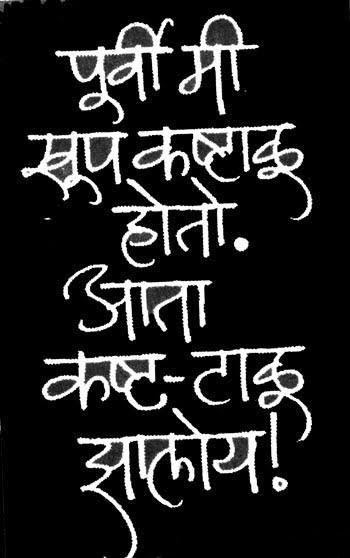 पूर्वी मी
खूप कष्टाळू
होतो.
आता
कष्ट-टाळू
झालोय!